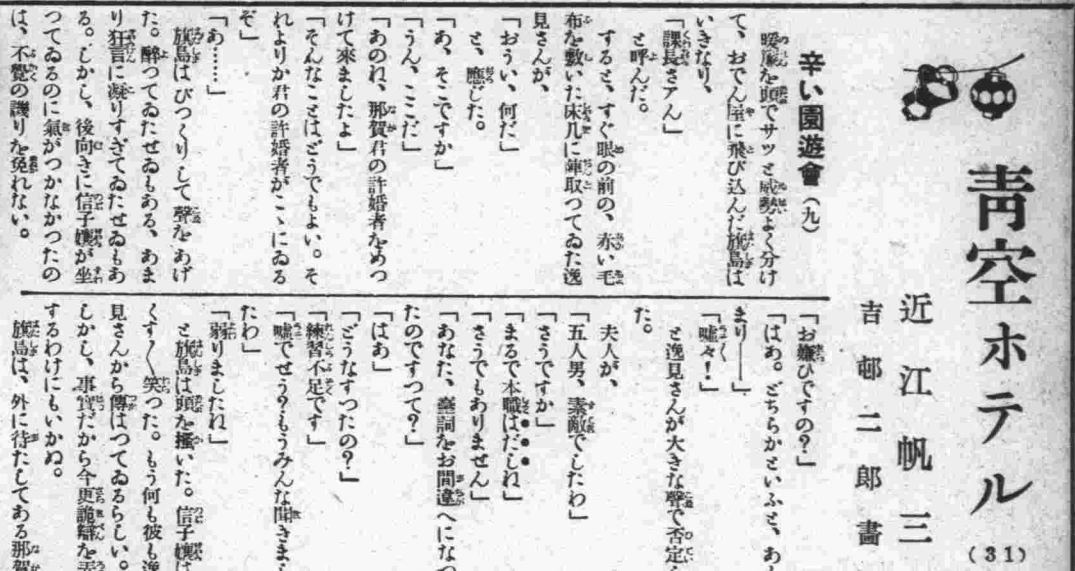 青空ホテル
(31)
近江帆三
吉邨二郎畫
辛い園遊會(九)
暖簾を頭でサツと威勢よく分け
て、おでん屋に飛び込んだ旗島は
いきなり、
「課長さアん」
と呼んだ。
すると、すぐ眼の前の、赤い毛
布を敷いた床几に陣取つてゐた逸
見さんが、
「おうい、何だ」
と、應じた。
「あ、そこですか」
「うん、こゝだ」
「あのね、那賀君の許婚者をめつ
けて來ましたよ」
「そんなことはどうでもよい。そ
れよりか君の許婚者がこゝにゐる
ぞ」
「あ……」
旗島はびつくりして聲をあげ
た。醉つてゐたせゐもある、あま
り狂言に凝りすぎてゐたせゐもあ
る。しかし、後向きに信子孃が坐
つてゐるのに氣がつかなかつたの
は、不覺の譏りを免れない。
「お嫌ひですの?」
「はあ。どちらかといふと、あ
まり——」
「嘘々!」
と逸見さんが大きな聲で否定
た。
夫人が、
「五人男、素敵でしたわ」
「さうですか」
「まるで本職はだしね」
「さうでもありません」
「あなた、臺詞をお間違へになつ
たのですつて?」
「はあ」
「どうなすつたの?」
「練習不足です」
「嘘でせう?もうみんな聞きま
たわ」
「弱りましたね」
と旗島は頭を搔いた。信子孃は
くす〳〵笑つた。もう何も彼も逸
見さんから傳はつてゐるらしい。
しかし、事實だから今更詭辯を
するわけにもいかぬ。
旗島は、外に待たしてある那賀